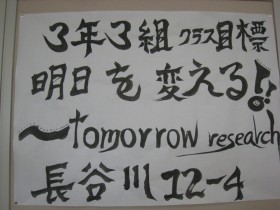 3年3組 クラス目標
明日を変える!!
～tomorrow research
長谷川 12-4